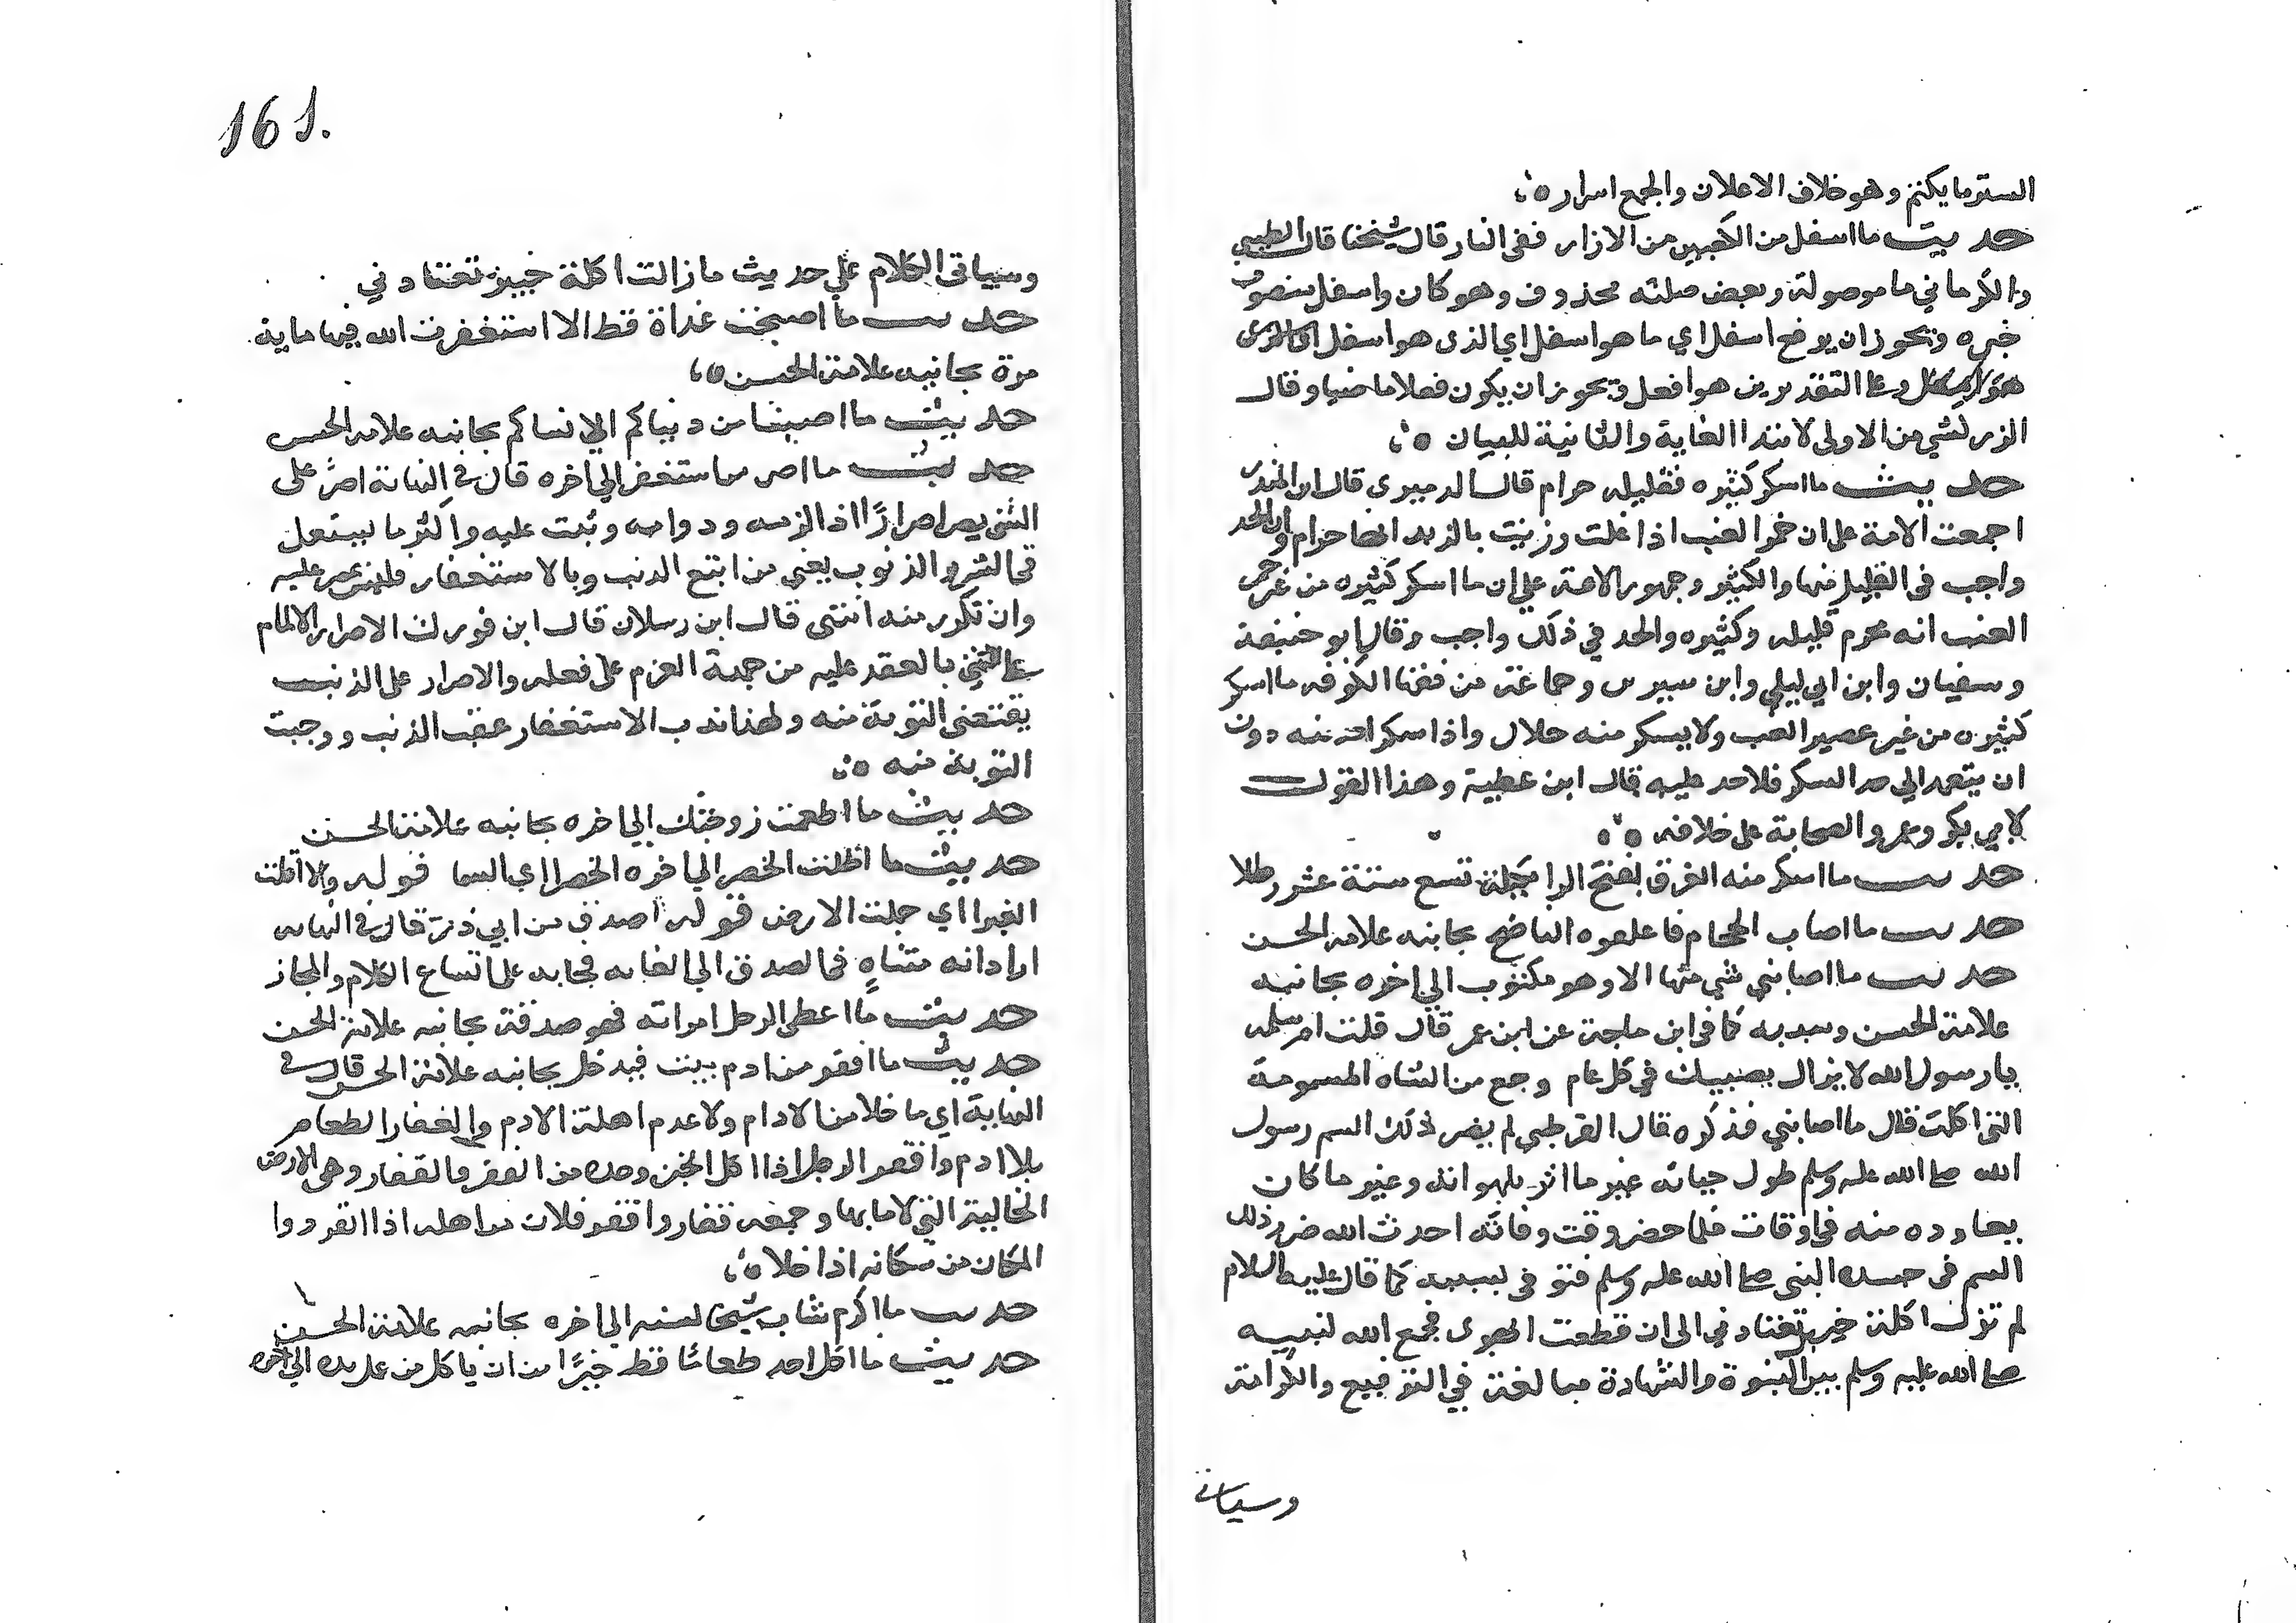 الستر ما يكتم وهو خلاف الاعلان والجمع اسرار ه
حديث ما اسفل من الكعبين من الازار ففي النار قال شيخنا قال الطيبي
والكرماني ما موصولة وبعض صلته محذوف وهو كان واسفل منصوب
خبره ويجوز ان يرفع اسفل اي ما هو اسفل اي الذي هو اسفل
وعلى التقديرين هو افعل ويجوز ان يكون فعلا ماضيا وقال
الزركشي من الاولى لابتدا الغاية والثانية للبيان ه
حديث ما اسكر كثيره فقليله حرام قال الدميري قال ابن المنذر
اجمعت الامة على ان خمر العنب اذا غلت ورزيت بالزبد انها حرام وان الحد
واجب في القليل منها والكثير وجمهور الامة على ان ما اسكر كثيره من غير خمر
العنب انه محرم قليله وكثيره والحد في ذلك واجب وقال ابو حنيفة
وسفيان وابن ابي ليلى وابن سيرين وجماعة من فقها الكوفه ما اسكر
كثيره من غير عصير العنب ولا يسكر منه حلال واذا سكر احد منه دون
ان يتعمد الى حد السكر فلا حد عليه قال ابن عطية وهذا القول
لابي بكر وعمر والصحابة على خلافه ه
حديث ما اسكر منه الفرق بفتح الرا مكيلة تسع ستة عشر رطلا
حديث ما اصاب الحجام فاعلفوه الناضح بجانبه علامة الحسن
حديث ما اصابني شي منها الا وهو مكتوب الى اخره بجانبه
علامة الحسن وسببه كما في ابن ماجة عن ابن عمر قال قلت ام سلمه
يا رسول الله لا يزال يصيبك في كل عام وجع من الشاه المسمومة
التي اكلت قال ما اصابني فذكره قال القرطبي لم يضر ذلك السم رسول
الله صلى الله عليه وسلم طول حياته غير ما اثر بلهواته وغير ما كان
يعاوده منه في اوقات فلما حضر وقت وفاته احدث الله ضرر ذلك
السم في جسد النبي صلى الله عليه وسلم فتوفي بسببه كما قال عليه السلام
لم تزل اكلة خيبر تعتادني الى ان قطعت ابهري فجمع الله لنبيه
صلى الله عليه وسلم بين النبوة والشهادة مبالغة في الترفيع والكرامة
وسياتي
161.
وسياتي الكلام على حديث ما زالت اكلة خيبر تعتادني
حديث ما اصبحت غداة قط الا استغفرت الله فيها ماية
مرة بجانبه علامة الحسن ه
حديث ما اصبنا من دنياكم الا نساكم بجانبه علامة الحسن
حديث ما اصر من استغفر الى اخره قال في النهاية اصر على
الشي يصر اصرارًا اذا لزمه ودوامه وثبت عليه واكثر ما يستعمل
في الشر والذنوب يعني من اتبع الذنب وبالاستغفار فليس بمصر عليه
وان تكرر منه انتهى قال ابن رسلان قال ابن فورك الاصرار الالمام
على الشي بالعقد عليه من جهة العزم على فعله والاصرار على الذنب
يقتضي التوبة منه ولهذا ندب الاستغفار عقب الذنب ووجبت
التوبة منه ه
حديث ما اطعمت زوجتك الى اخره بجانبه علامة الحسن
حديث ما اظلت الخضرا الى اخره الخضرا اي السما قوله ولا اقلت
الغبرا اي حملت الارض قوله اصدق من ابي ذر قال في النهايه
اراد انه متناهٍ في الصدق الى الغايه فجا به على اتساع الكلام والمجاز
حديث ما اعطى الرجل امراته فهو صدقة بجانبه علامة الحسن
حديث ما اقفر من ادم بيت فيه خل بجانبه علامة الحسن قال في
النهاية اي ما خلا من الادام ولا عدم اهله الادم والقفار الطعام
بلا ادم واقفر الرجل اذا اكل الخبز وحده من القفر والقفار وهي الارض
الخالية التي لا ما بها وجمعه قفار واقفر فلان من اهله اذا انفرد وا
المكان من سكانه اذا خلا ه
حديث ما اكرم شاب شيخا لسنه الى اخره بجانبه علامة الحسن
حديث ما اكل احد طعامًا قط خيرًا من ان ياكل من عمل يده الى اخره